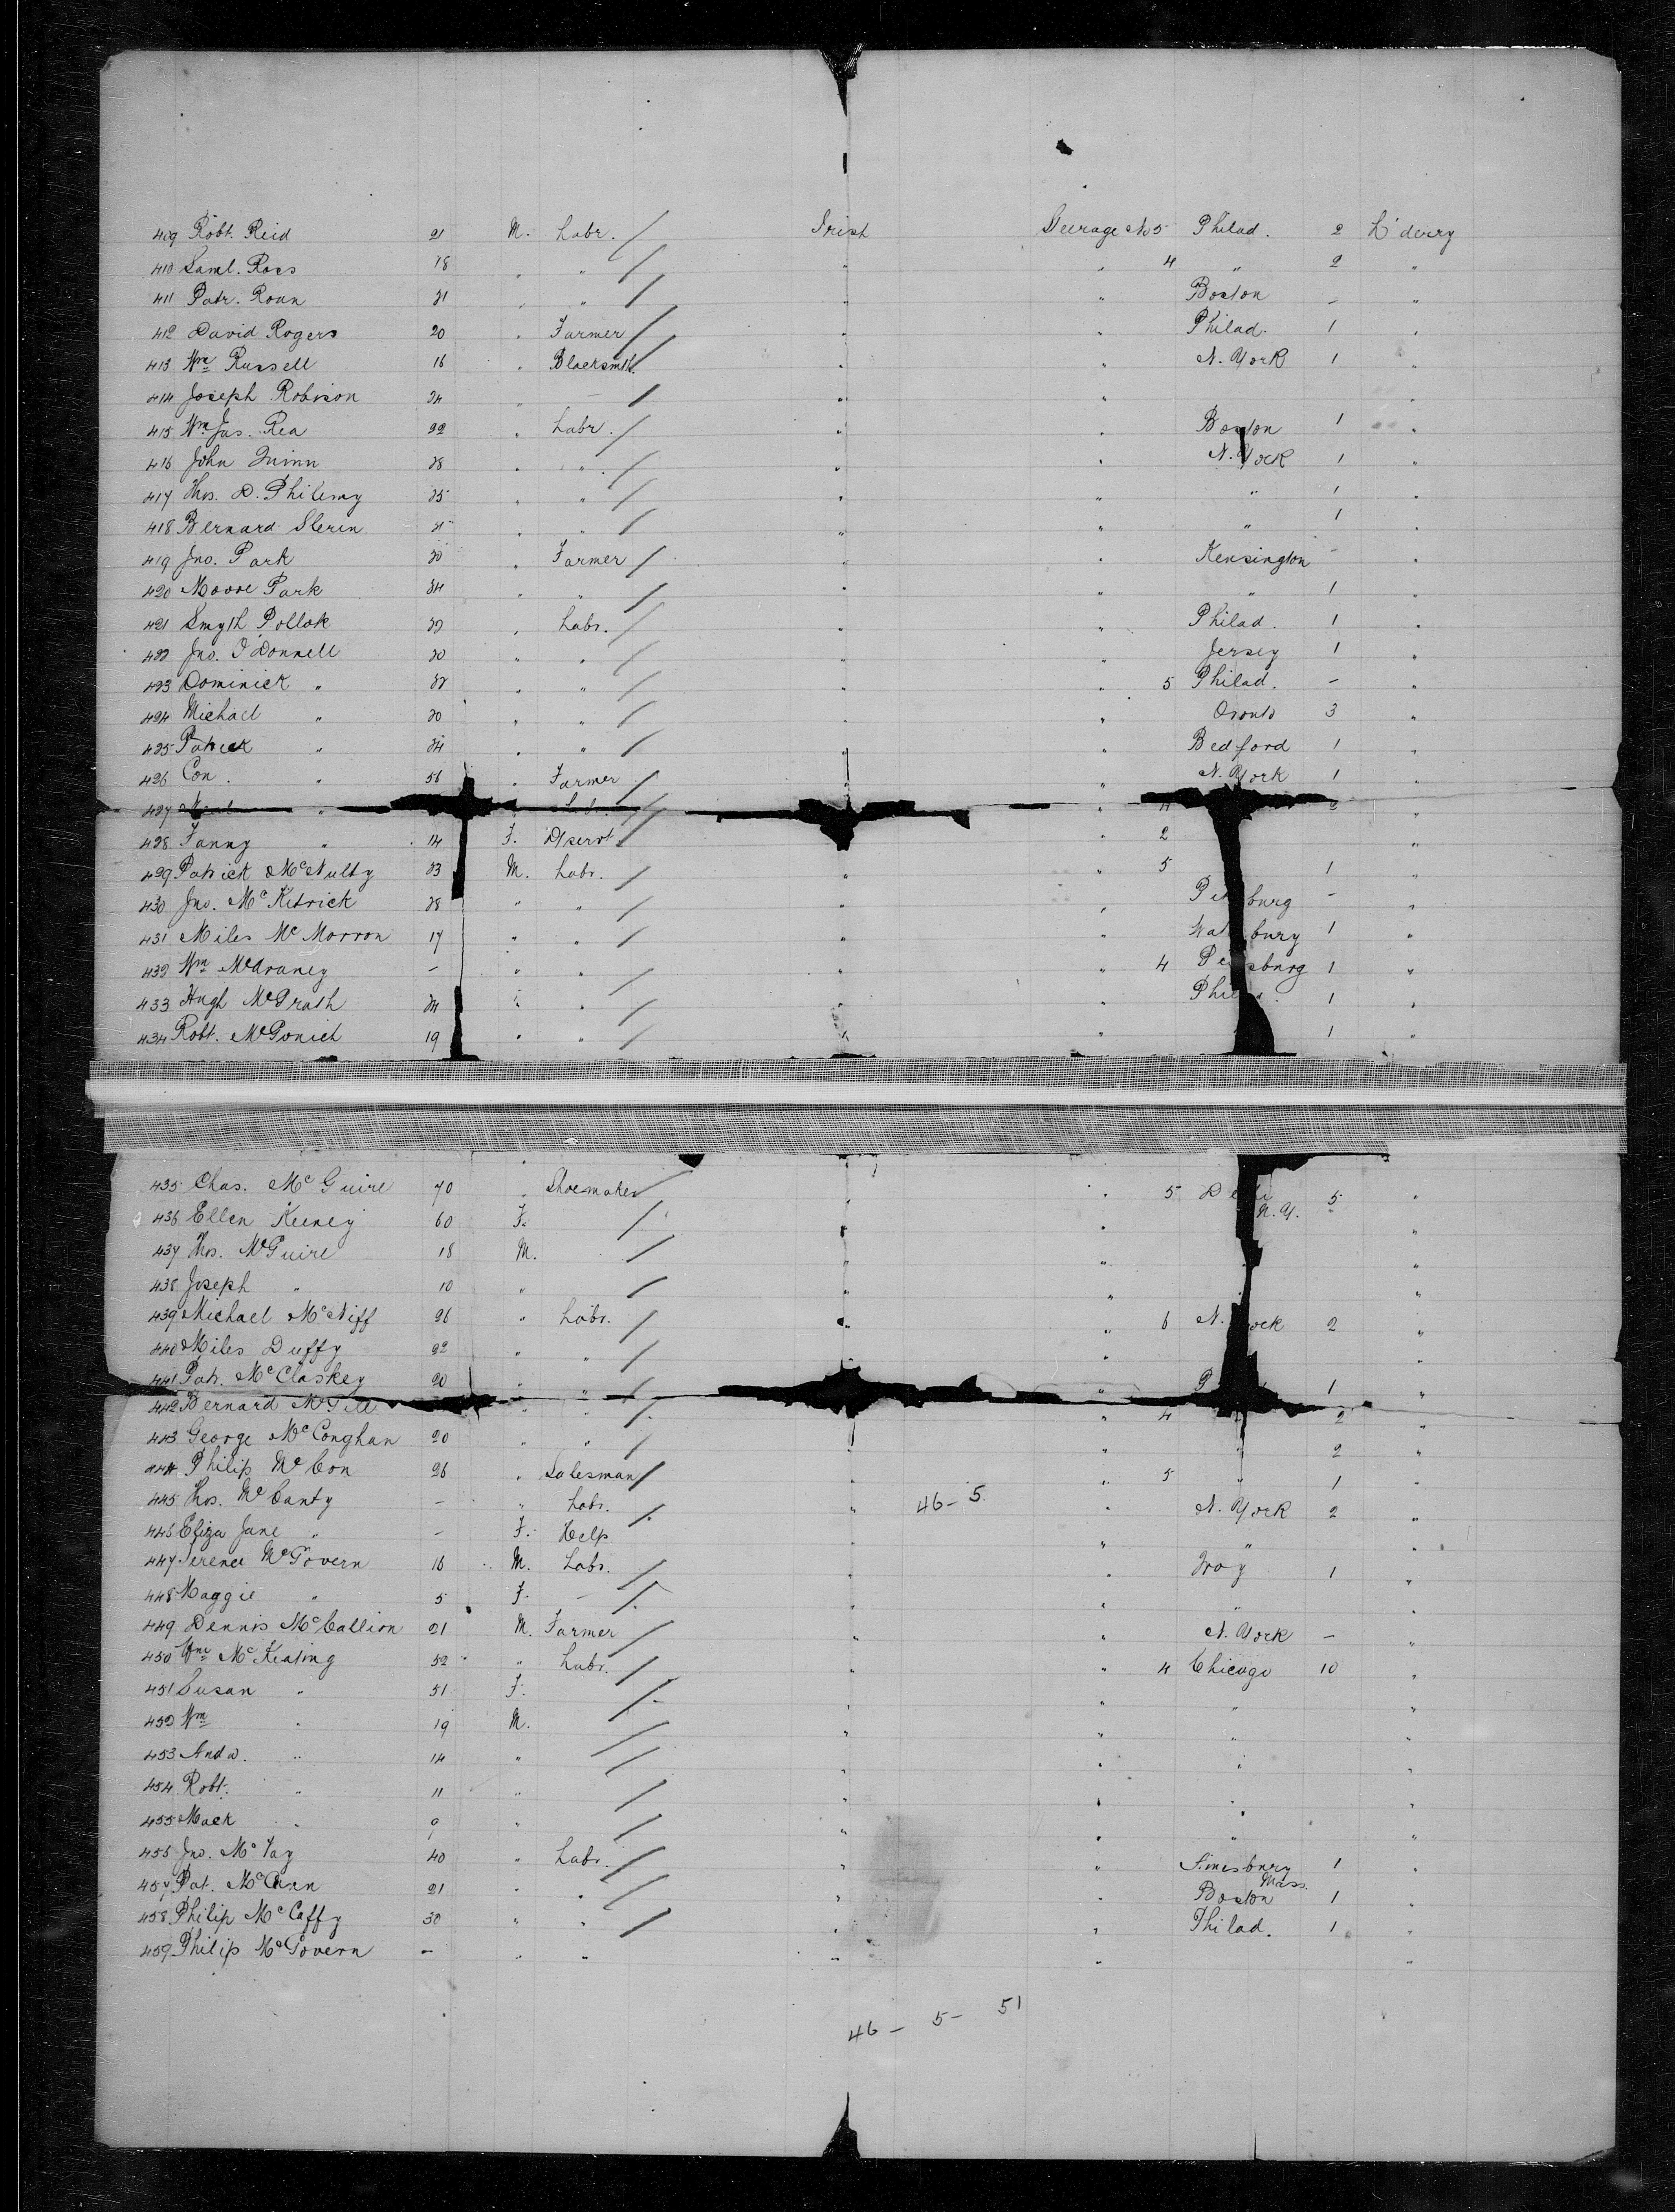 409 Robt. Reid 21 M. Labr. / Irish Steerage No 5 Philad. 2 L'derry
410 Saml. Ross 18 " " / " " 4 " 2 "
411 Patr. " " / " " Boston - "
412 David Rogers 20 " Farmer / " " Philad. 1 "
413 Wm Russell 16 " Blacksmith / " " N. York 1 "
414 Joseph Robison 24 " - / " " "
415 Wm Jas. Rea 22 " Labr. / " " Boston 1 "
416 John Quinn 28 " " / " " N. York 1 "
417 Thos. D. 25 " " / " " " 1 "
418 Bernard " " / " " " 1 "
419 Jno. Park 20 " Farmer / " " Kensington - "
420 Moore Park 24 " " / " " " 1 "
421 Smyth Pollok " Labr. / " " Philad. 1 "
422 Jno. O'Donnell 20 " " / " " Jersey 1 "
423 Dominick " " " / " " 5 Philad. - "
424 Michael " 20 " " / " " 3 "
425 Patrick " 24 " " / " " Bedford 1 "
426 Con. " 56 " Farmer / " " N. York 1 "
427 " / " 4 2 "
428 Fanny " 14 F. / " 2 "
429 Patrick McNulty 23 M. Labr. / " " 5 1 "
430 Jno. McKitrick 28 " " / " " burg - "
431 Miles McMorron 17 " " / " " bury 1 "
432 Wm - " " / " " 4 sburg 1 "
433 Hugh McGrath 24 " " / " " 1 "
434 Robt. McGonich 19 " " / " " 1 "
435 Chas. McGuire 70 " Shoemaker / " " 5 N.Y. 5 "
436 Ellen Keeney 60 F. / " " "
437 Thos. McGuire 18 M. / " " "
438 Joseph " 10 " / " " "
439 Michael McNiff 26 " Labr. / " " 6 N. York 2 "
440 Miles Duffy 22 " " / " " "
441 Patr. McCloskey 20 " " / " P 1 "
442 Bernard McGill " " / " 4 2 "
443 George McConghan 20 " " / " " " 2 "
444 Philip McCon 26 " Salesman / " " 5 " 1 "
445 Thos. McCanty - " Labr. / " 46-5 " N. York 2 "
446 Eliza Jane " - F. Help " " "
447 Terence McGovern 16 M. Labr. / " " Troy 1 "
448 Maggie " 5 F. - / " " " "
449 Dennis McCallion 21 M. Farmer / " " N. York - "
450 Wm McKeating 52 " Labr. / " " 4 Chicago 10 "
451 Susan " 51 F. / " " " "
452 Wm " 19 M. / " " " "
453 Andw. " 14 " / " " " "
454 Robt. " 11 " / " " " "
455 Mack " 9 " / " " " "
456 Jno. McVay 40 " Labr. / " " Simesbury Mass. 1 "
457 Pat. McCann 21 " " / " " Boston 1 "
458 Philip McCaffy 30 " " / " " Philad. 1 "
459 Philip McGovern - " " " " "
46 - 5 - 51